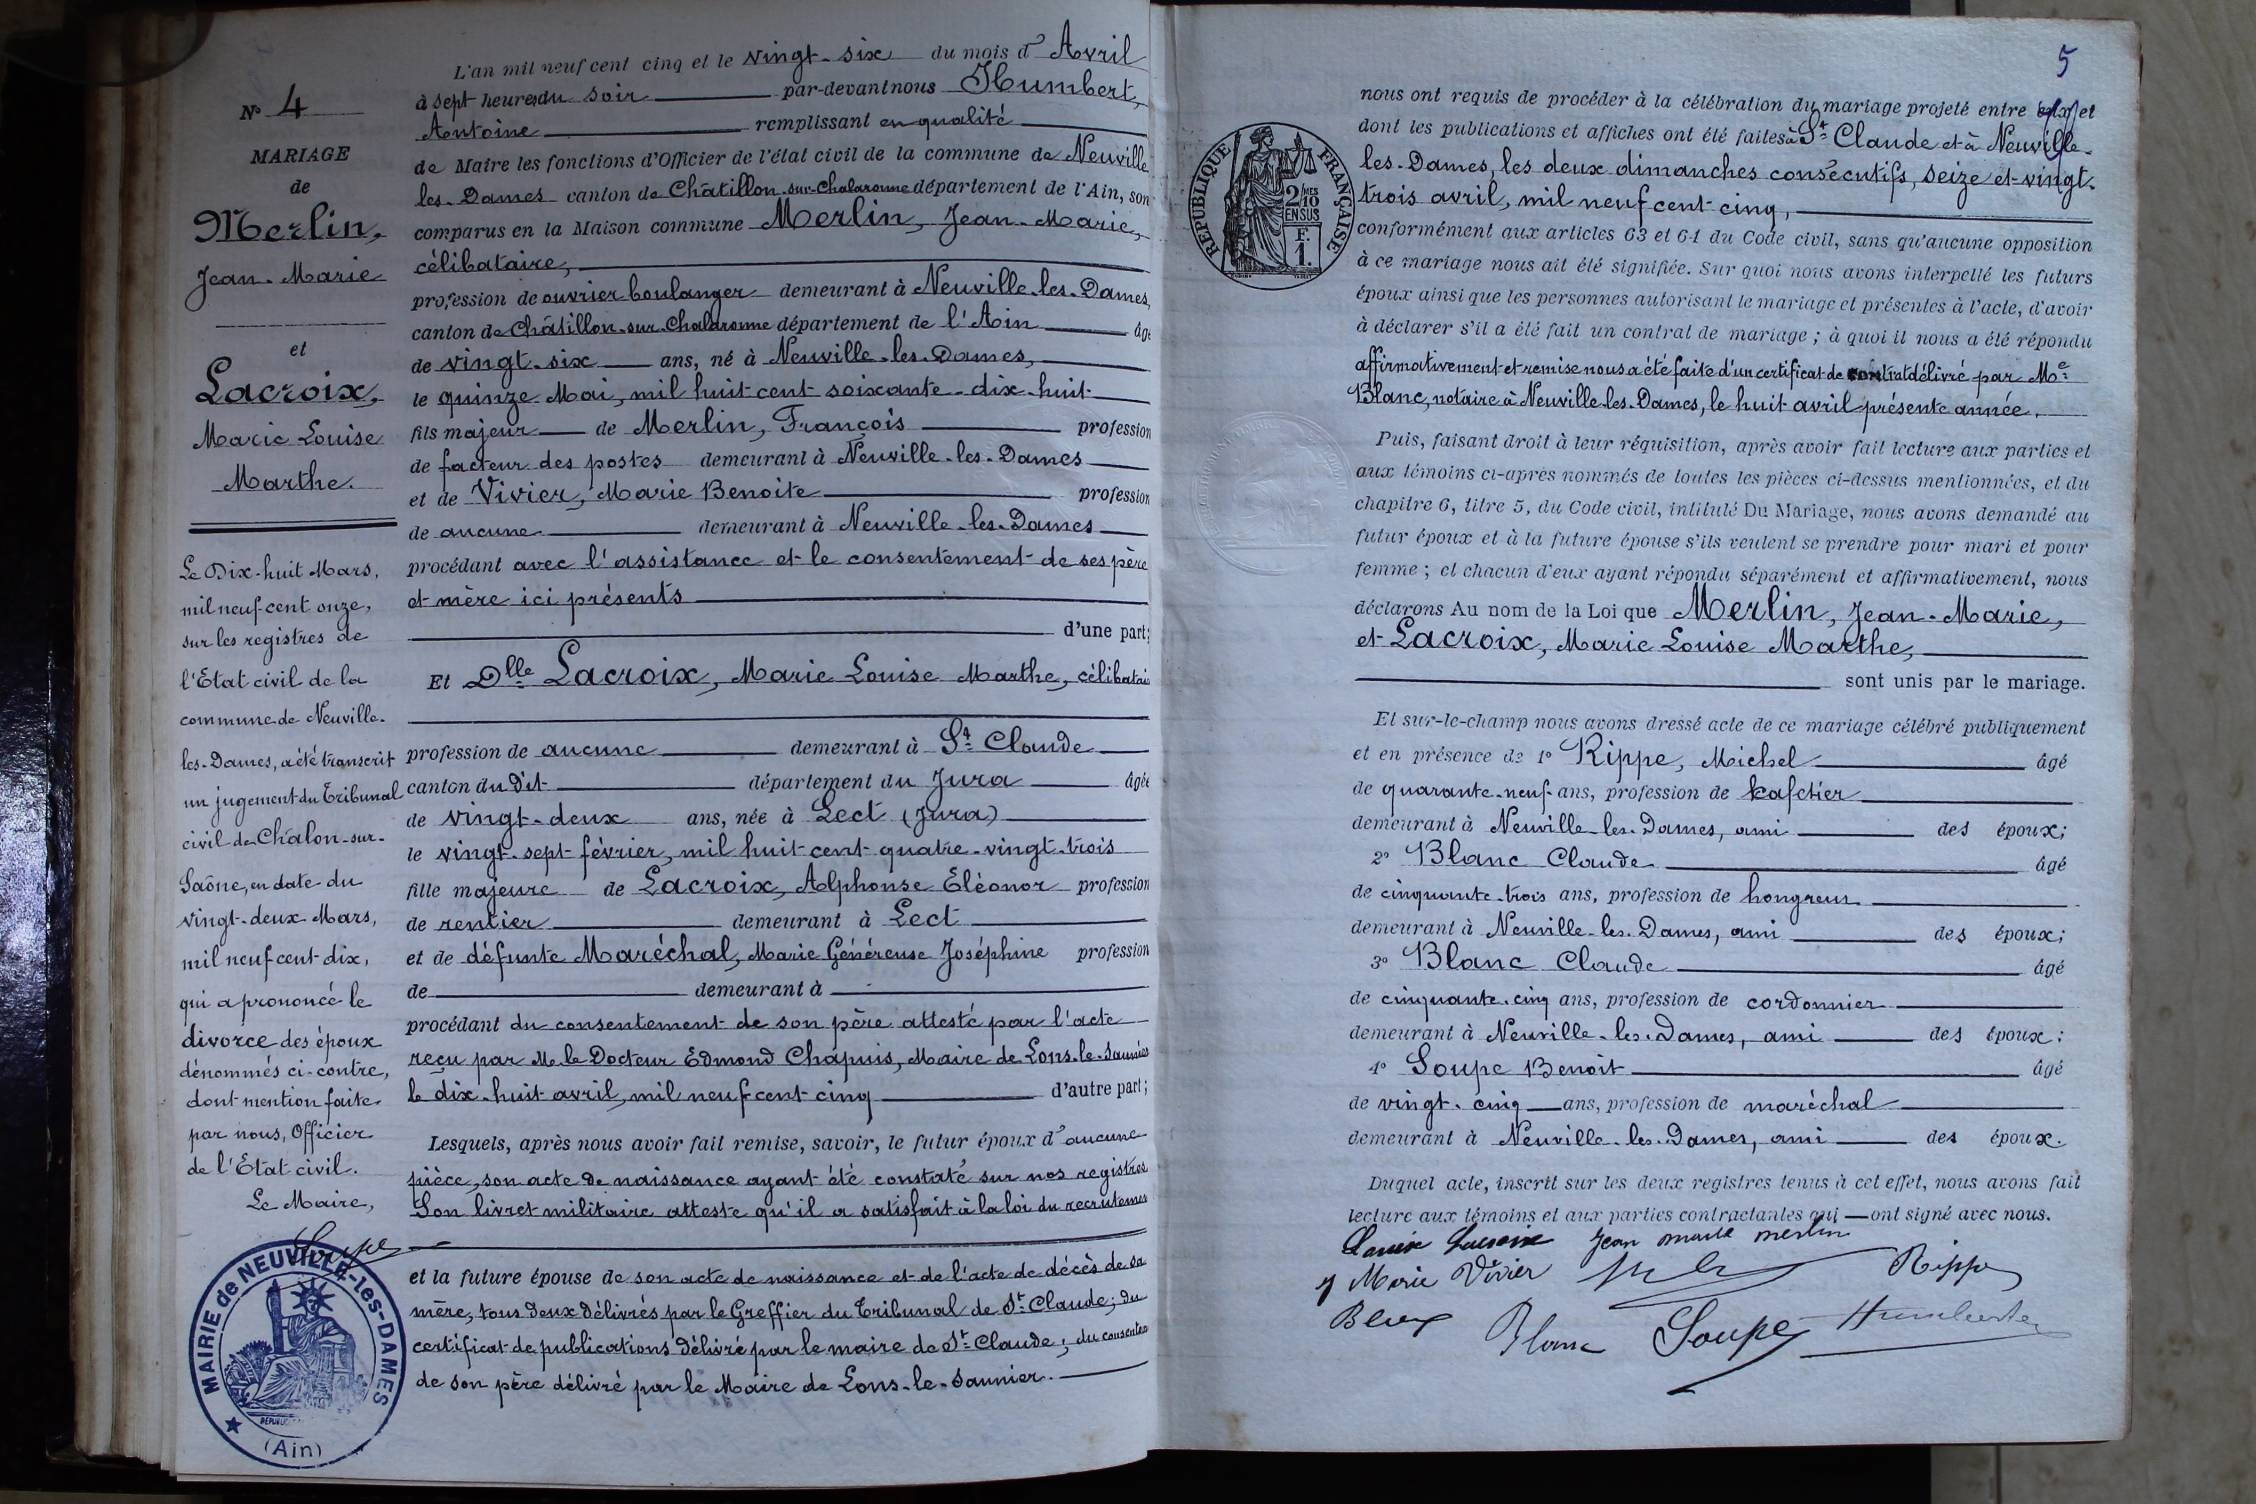 N° 4
MARIAGE
de
Merlin,
Jean-Marie
et
Lacroix,
Marie Louise
Marthe.
Le Dix-huit Mars,
mil neuf cent onze,
sur les registres de
l'Etat civil de la
commune de Neuville-
les-Dames, a été transcrit
un jugement du Tribunal
civil de Châlon-sur-
Saône, en date du
vingt-deux Mars,
mil neuf cent dix,
qui a prononcé le
divorce des époux
dénommés ci-contre,
dont mention faite
par nous, Officier
de l'Etat civil.
Le Maire,
Soupe
MAIRIE de NEUVILLE-les-DAMES
(Ain)
L'an mil neuf cent cinq et le vingt-six du mois d'Avril
à sept heures du soir par-devant nous Humbert,
Antoine remplissant en qualité
de Maire les fonctions d'Officier de l'état civil de la commune de Neuville
les-Dames canton de Châtillon-sur-Chalaronne département de l'Ain, son
comparus en la Maison commune Merlin, Jean-Marie,
célibataire,
profession de ouvrier boulanger demeurant à Neuville-les-Dames,
canton de Châtillon-sur-Chalaronne département de l'Ain âgé
de vingt-six ans, né à Neuville-les-Dames,
le quinze Mai, mil huit cent soixante-dix-huit
fils majeur de Merlin, François profession
de facteur des postes demeurant à Neuville-les-Dames
et de Vivier, Marie Benoite profession
de aucune demeurant à Neuville-les-Dames
procédant avec l'assistance et le consentement de ses père
et mère ici présents
d'une part;
Et Dlle Lacroix, Marie Louise Marthe, célibatai
profession de aucune demeurant à St Claude
canton du dit département du Jura âgée
de vingt-deux ans, née à Lect (Jura)
le vingt-sept février, mil huit cent quatre-vingt-trois
fille majeure de Lacroix, Alphonse Eléonor profession
de rentier demeurant à Lect
et de défunte Maréchal, Marie Généreuse Joséphine profession
de demeurant à
procédant du consentement de son père attesté par l'acte
reçu par M. le Docteur Edmond Chapuis, Maire de Lons-le-Saunier
le dix-huit avril, mil neuf cent cinq d'autre part;
Lesquels, après nous avoir fait remise, savoir, le futur époux d'aucune
pièce, son acte de naissance ayant été constaté sur nos registres
Son livret militaire atteste qu'il a satisfait à la loi du recrutemen
et la future épouse de son acte de naissance et de l'acte de décès de sa
mère, tous deux délivrés par le Greffier du Tribunal de St Claude; du
certificat de publications délivré par le maire de St Claude; du consentem
de son père délivré par le Maire de Lons-le-Saunier.
5
RÉPUBLIQUE FRANÇAISE
2/10
EN SUS
F.
1.
nous ont requis de procéder à la célébration du mariage projeté entre eux et
dont les publications et affiches ont été faites à St Claude et à Neuville-
les-Dames, les deux dimanches consécutifs, seize et vingt-
trois avril, mil neuf cent cinq,
conformément aux articles 63 et 64 du Code civil, sans qu'aucune opposition
à ce mariage nous ait été signifiée. Sur quoi nous avons interpellé les futurs
époux ainsi que les personnes autorisant le mariage et présentes à l'acte, d'avoir
à déclarer s'il a été fait un contrat de mariage ; à quoi il nous a été répondu
affirmativement et remise nous a été faite d'un certificat de contrat délivré par Me
Blanc, notaire à Neuville-les-Dames, le huit avril présente année.
Puis, faisant droit à leur réquisition, après avoir fait lecture aux parties et
aux témoins ci-après nommés de toutes les pièces ci-dessus mentionnées, et du
chapitre 6, titre 5, du Code civil, intitulé Du Mariage, nous avons demandé au
futur époux et à la future épouse s'ils veulent se prendre pour mari et pour
femme ; et chacun d'eux ayant répondu séparément et affirmativement, nous
déclarons Au nom de la Loi que Merlin, Jean-Marie,
et Lacroix, Marie Louise Marthe,
sont unis par le mariage.
Et sur-le-champ nous avons dressé acte de ce mariage célébré publiquement
et en présence de 1° Rippe, Michel âgé
de quarante-neuf ans, profession de kafetier
demeurant à Neuville-les-Dames, ami des époux;
2° Blanc Claude âgé
de cinquante-trois ans, profession de hongreur
demeurant à Neuville-les-Dames, ami des époux;
3° Blanc Claude âgé
de cinquante-cinq ans, profession de cordonnier
demeurant à Neuville-les-Dames, ami des époux;
4° Soupe Benoit âgé
de vingt-cinq ans, profession de maréchal
demeurant à Neuville-les-Dames, ami des époux.
Duquel acte, inscrit sur les deux registres tenus à cet effet, nous avons fait
lecture aux témoins et aux parties contractantes qui ont signé avec nous.
Louise Lacroix Jean marie merlin
Marie Vivier Rippe
Blanc Soupe Humbert